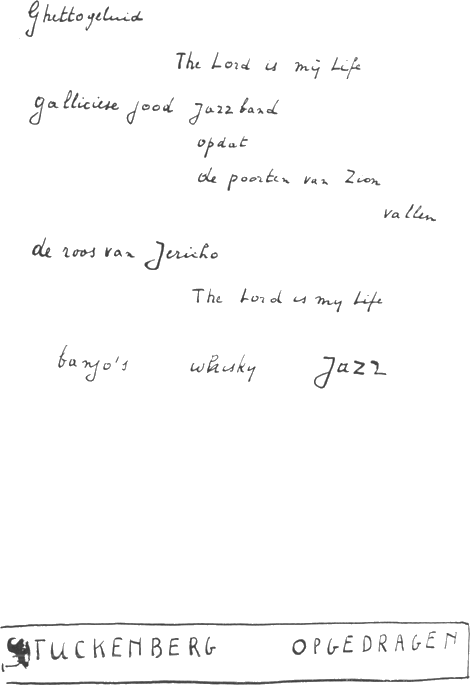 Ghettogeluid
The Lord is my Life
galliciese jood jazzband
opdat
de poorten van Zion
vallen
de roos van Jericho
The Lord is my Life
banjo's whisky Jazz
STUCKENBERG OPGEDRAGEN